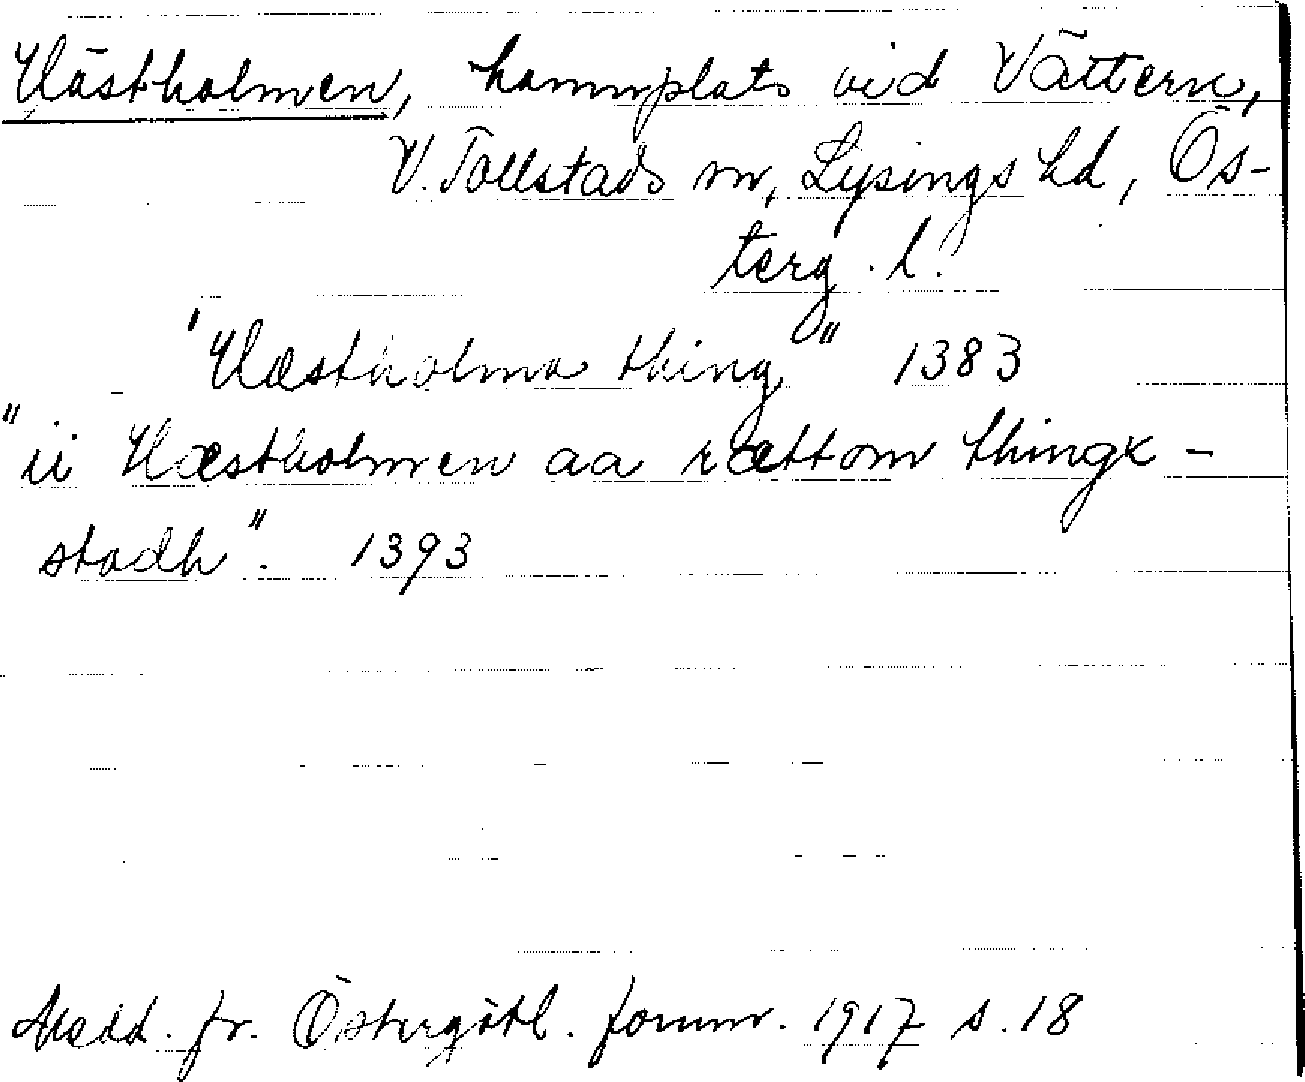 Hästholmen, hamnplats vid Vättern,
V. Tollstads sn, Lysings hd, Ös-
terg. l.
"Hæstholma thing" 1383
"ii Hæstholmen aa rættom thingx-
stadh". 1393
Medd. fr. Östergötl. fornm. 1917 s. 18